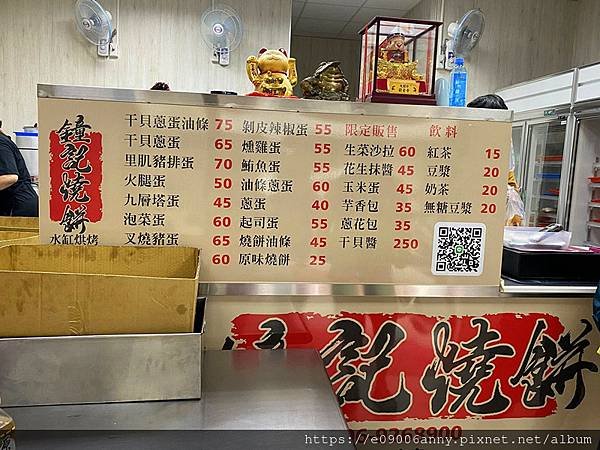 鐘記燒餅
水缸烘烤
干貝蔥蛋油條 75
干貝蔥蛋 65
里肌豬排蛋 70
火腿蛋 50
九層塔蛋 45
泡菜蛋 60
叉燒豬蛋 65
60
剝皮辣椒蛋 55
燻雞蛋 55
鮪魚蛋 55
油條蔥蛋 60
蔥蛋 40
起司蛋 55
燒餅油條 45
原味燒餅 25
限定販售
生菜沙拉 60
花生抹醬 45
玉米蛋 45
芋香包 35
蔥花包 35
干貝醬 250
飲料
紅茶 15
豆漿 20
奶茶 20
無糖豆漿 20
鐘記燒餅
https://e09006anny.pixnet.net/album